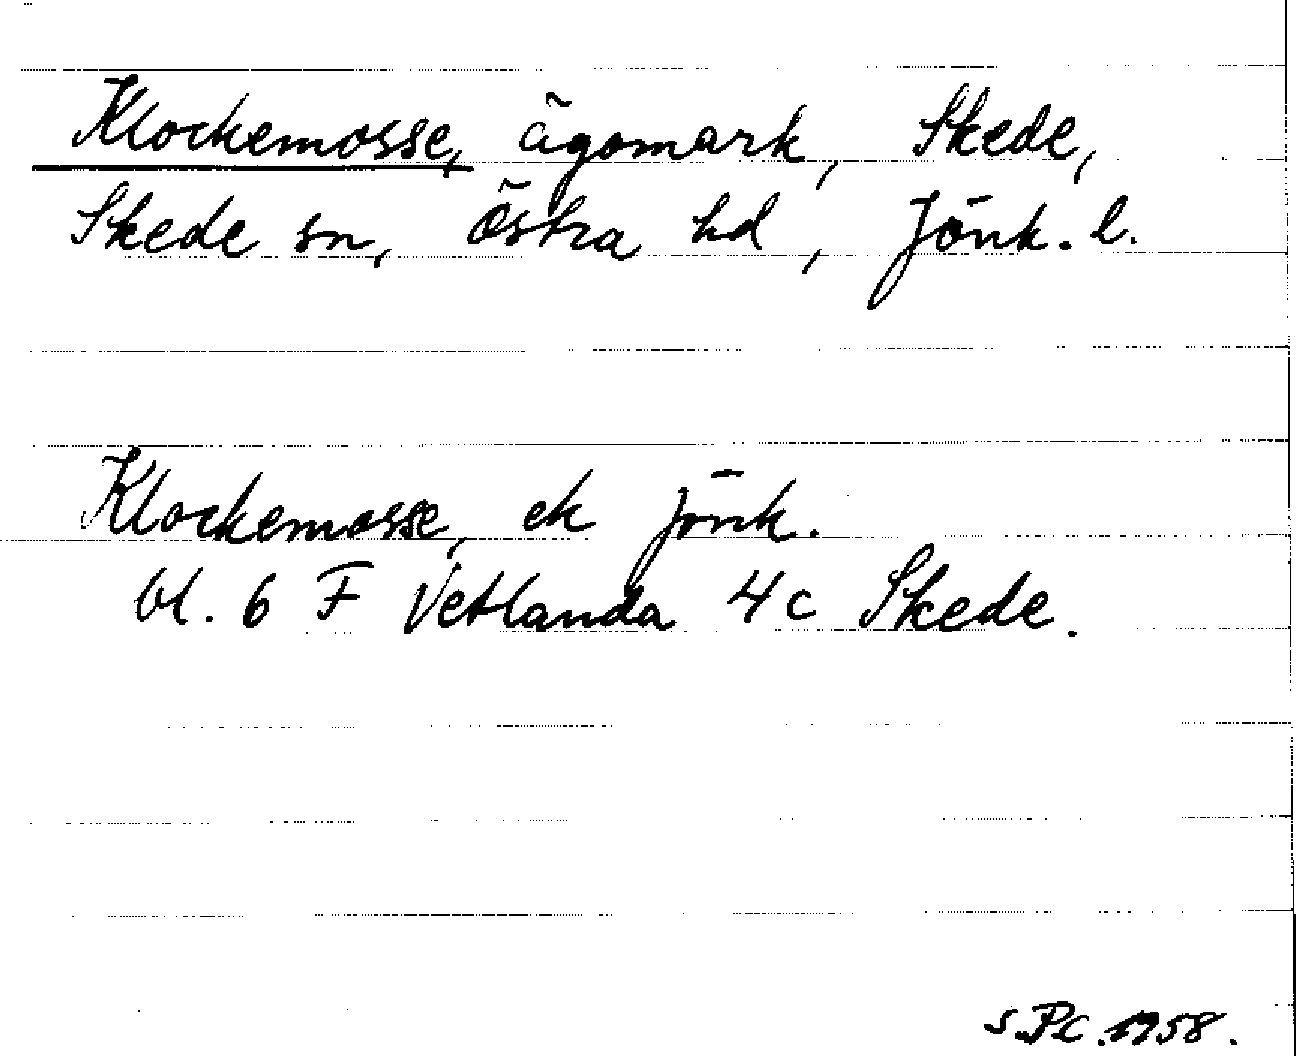 Klockemosse, ägomark, Skede,
Skede sn, Östra hd, Jönk. l.
Klockemosse, ek Jönk.
bl. 6 F Vetlanda 4c Skede.
1958.